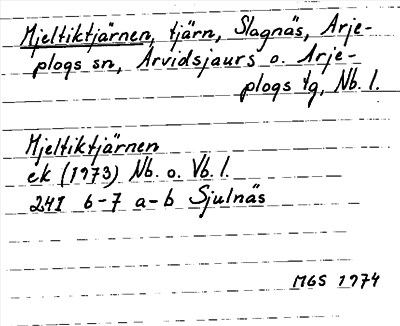 Mjeltiktjärnen, tjärn, Slagnäs, Arje-
plogs sn, Arvidsjaurs o. Arje-
plogs tg, Nb. l.
Mjeltiktjärnen
ek (1973) Nb. o. Vb. l.
24I 6-7 a-b Sjulnäs
MGS 1974